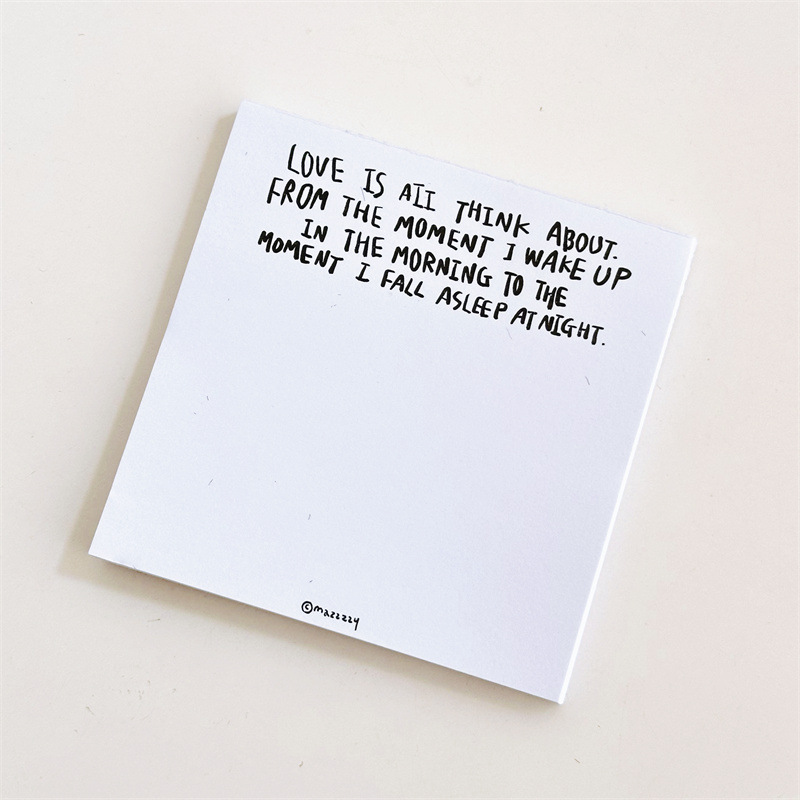 LOVE IS All THINK ABOUT.
FROM THE MOMENT I WAKE UP
IN THE MORNING TO THE
MOMENT I FALL ASLEEP AT NIGHT.
©mazzzzy